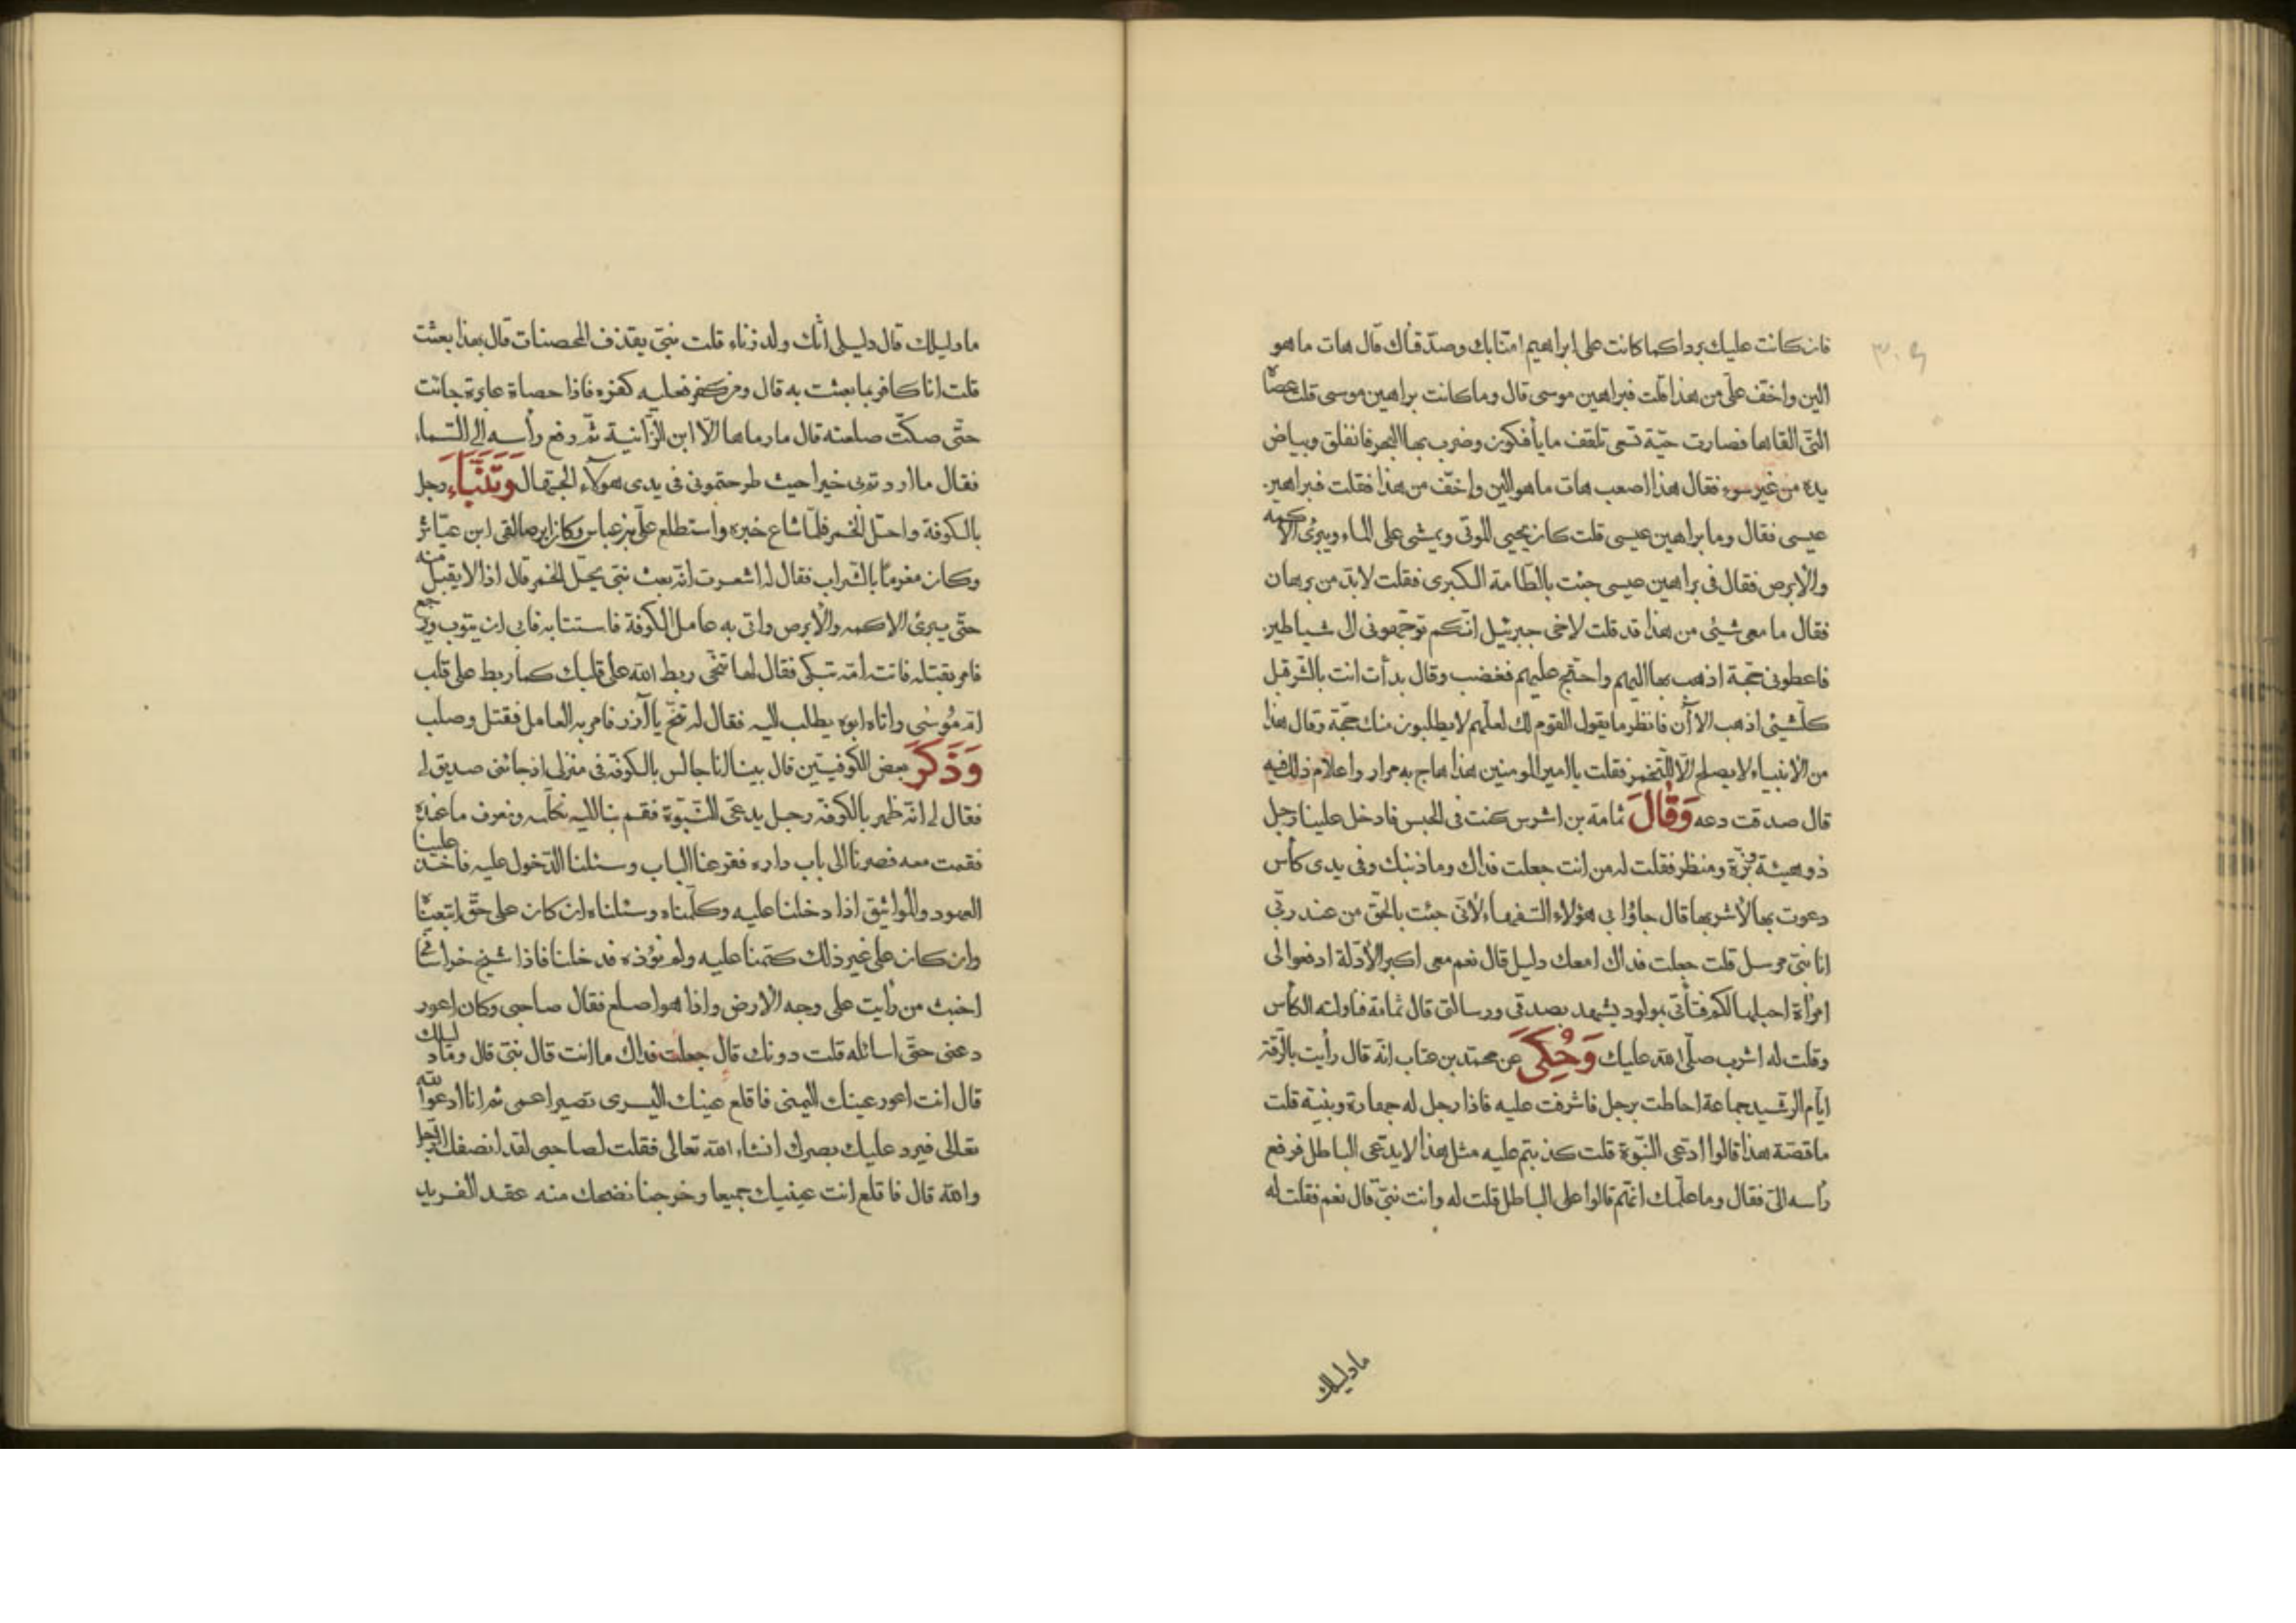 فان كانت عليك برداكما كانت على ابراهيم امتابك وصدّقناك قال هات ما هو
الين واخفّ علىّ من هذا قلت فبراهين موسى قال وما كانت براهين موسى قلت عصاه
التى القاها فصارت حيّة تسعى تلقف ما يأفكون وضرب بها البحر فانفلق وبياض
يده من غير سوء فقال هذا اصعب هات ما هو الين واخفّ من هذا فقلت فبراهين
عيسى فقال وما براهين عيسى قلت كان يحيى الموتى ويمشى على الماء ويبرئ الاكمه
والابرص فقال فى براهين عيسى جئت بالطّامة الكبرى فقلت لابدّ من برهان
فقال ما معى شيئ من هذا قد قلت لاخى جبرئيل انّكم توجّهونى الى شياطين
فاعطونى حجّة اذهب بها اليهم واحتجّ عليهم فغضب وقال بدأت انت بالشّر قبل
كلّ شيئ اذهب الاآن فانظر ما يقول القوم لك لعلّهم لا يطلبون منك حجّة وقال هذا
من الانبياء لا يصلح الّا للتّخمر فقلت يا امير المومنين هذا هاج به مرار واعلام ذلك فيه
قال صدقت دعه وَقَالَ ثمامة بن اشرس كنت فى الحبس فادخل علينا رجل
ذو هيئة بزّة ومنظر فقلت له من انت جعلت فداك وما ذنبك وفى يدى كأس
دعوت بها لاشربها قال جاؤا بى هؤلاء السّفهاء لانّى جئت بالحق من عند ربّى
انا نبىّ مرسل قلت جعلت فداك امعك دليل قال نعم معى اكبر الادّلة ادفعوا لى
امرأة احبلها لكم فتأتى بمولود يشهد بصدقى ورسالتى قال ثمامة فناولته الكأس
وقلت له اشرب صلّى الله عليك وَحُكِىَ عن محمّد بن عتاب انّه قال رأيت بالرّقة
ايّام الرّشيد جماعة احاطت برجل فاشرفت عليه فاذا رجل له جهارة وبنية قلت
ما قصّة هذا قالوا ادّعى النّبوة قلت كذبتم عليه مثل هذا لا يدّعى الباطل فرفع
رأسه الىّ فقال وما علّمك انّهم قالوا على الباطل قلت له وانت نبىّ قال نعم فقلت له
ما دليلك
ما دليلك قال دليلى انّك ولد زناء قلت نبىّ يقذف المحصنات قال بهذا بعثت
قلت انا كافر بما بعثت به قال ومن كفر فعليه كفره فاذا حصاة عايرة جائت
حتّى صكّت صلعته قال ما رماها الّا ابن الزّانية ثمّ رفع رأسه الى السّماء
فقال ما اردتم بى خيرا حيث طرحتمونى فى يدى هولآء الجهّال وَتَنَبَّاءَ رجل
بالكوفة واحلّ الخمر فلمّا شاع خبره واستطلع على بن عباس وكان ابرصا لقى ابن عيّاش
وكان مغرما بالشّراب فقال له اشعرت انّه بعث نبىّ يحلّ الخمر قال اذا لا يقبل منه
حتّى يبرئ الاكمه والابرص واتى به عامل الكوفة فاستتابه فابى ان يتوب ويرجع
فامر بقتله فاتته امّه تبكى فقال لها تنحّى ربط الله على قلبك كما ربط على قلب
امّ مُوسٰى واتاه ابوه يطلب اليه فقال له تنحّ يا آزر فامر به العامل فقتل وصلب
وَذَكَرَ بعض الكوفيّين قال بينا انا جالس بالكوفة فى منزلى اذ جائنى صديق لى
فقال لى انّه ظهر بالكوفة رجل يدعّى النّبوّة فقم بنا اليه نكلّمه ونعرف ما عنده
فقمت معه فصرنا الى باب داره فقرعنا الباب وسئلنا الدّخول عليه فاخذ علينا
العهود والمواثيق اذا دخلنا عليه وكلّمناه وسئلناه ان كان على حقّ اتبعيناه
وان كان على غير ذلك كتمنا عليه ولم نؤذه فدخلنا فاذا شيخ خراسانى
اخبث من رأيت على وجه الارض واذا هو اصلع فقال صاحبى وكان اعور
دعنى حتّى اسائله قلت دونك قال جعلت فداك ما انت قال نبىّ قال وما دليلك
قال انت اعور عينك اليمنى فاقلع عينك اليسرى تصير اعمى ثم انا ادعوا الله
تعالى فيرد عليك بصرك انشاء الله تعالى فقلت لصاحبى لقد انصفك الرّجل
والله قال فاقلع انت عينيك جميعا وخرجنا نضحك منه عقد الفريد